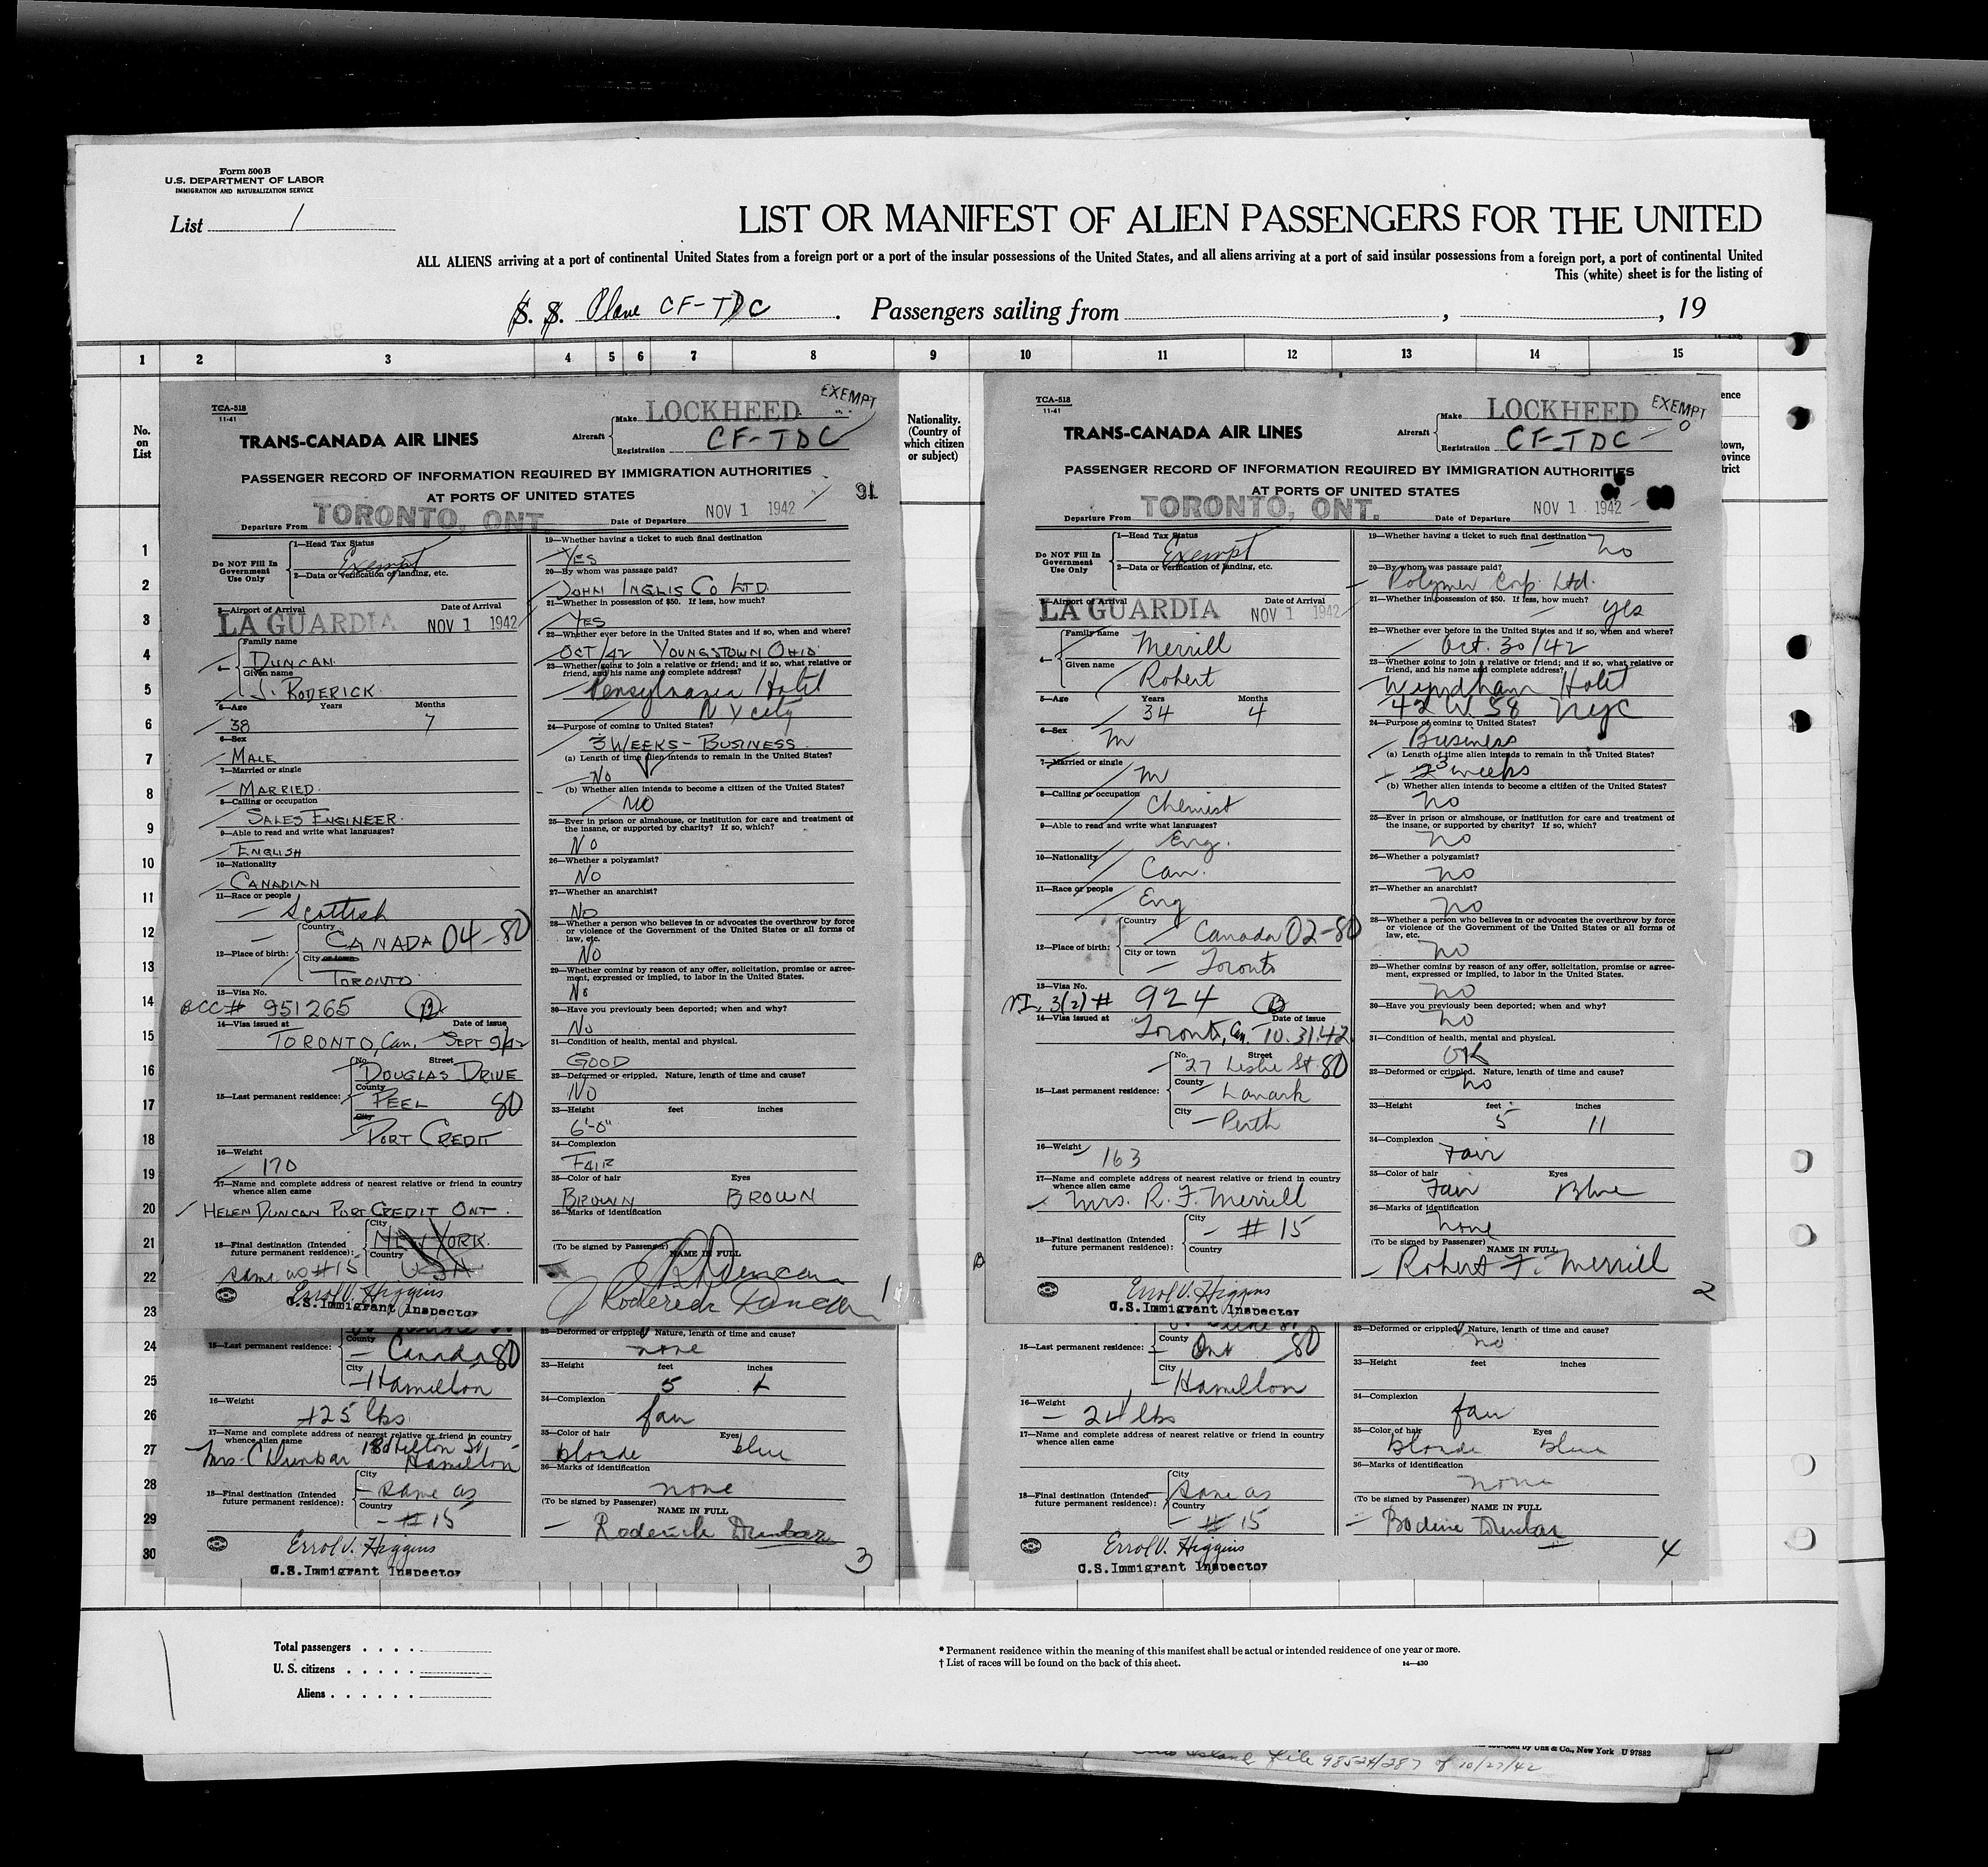 Form 500 B
U.S. DEPARTMENT OF LABOR
IMMIGRATION AND NATURALIZATION SERVICE
List 1
LIST OR MANIFEST OF ALIEN PASSENGERS FOR THE UNITED
ALL ALIENS arriving at a port of continental United States from a foreign port or a port of the insular possessions of the United States, and all aliens arriving at a port of said insular possessions from a foreign port, a port of continental United
This (white) sheet is for the listing of
S. S. Plane CF-TDC. Passengers sailing from , , 19
1 2 3 4 5 6 7 8 9 10 11 12 13 14 15
No. on List
Nationality. (Country of which citizen or subject)
1
2
3
4
5
6
7
8
9
10
11
12
13
14
15
16
17
18
19
20
21
22
23
24
25
26
27
28
29
30
TCA-518
11-41
EXEMPT
TRANS-CANADA AIR LINES
Aircraft
Make LOCKHEED
Registration CF-TDC
PASSENGER RECORD OF INFORMATION REQUIRED BY IMMIGRATION AUTHORITIES
AT PORTS OF UNITED STATES
91
Departure From TORONTO, ONT.
Date of Departure NOV 1 1942
Do NOT Fill In Government Use Only
1—Head Tax Status
Exempt
2—Data or verification of landing, etc.
3—Airport of Arrival Date of Arrival
LA GUARDIA NOV 1 1942
4—
Family name
DUNCAN
Given name
J. RODERICK
5—Age Years Months
38 7
6—Sex
MALE
7—Married or single
MARRIED
8—Calling or occupation
SALES ENGINEER
9—Able to read and write what languages?
ENGLISH
10—Nationality
CANADIAN
11—Race or people
Scottish
12—Place of birth:
Country
CANADA 04-80
City or town
TORONTO
13—Visa No.
BCC# 951265 B
14—Visa issued at Date of issue
TORONTO, Can. SEPT 9/42
15—Last permanent residence:
No. Street
DOUGLAS DRIVE
County
PEEL 80
City
PORT CREDIT
16—Weight
170
17—Name and complete address of nearest relative or friend in country whence alien came
HELEN DUNCAN PORT CREDIT ONT.
18—Final destination (Intended future permanent residence):
City
NEW YORK
Country
USA
same as #15
Errol V. Higgins
U.S. Immigrant Inspector
19—Whether having a ticket to such final destination
YES
20—By whom was passage paid?
JOHN INGLIS CO LTD.
21—Whether in possession of $50. If less, how much?
YES
22—Whether ever before in the United States and if so, when and where?
OCT/42 YOUNGSTOWN OHIO
23—Whether going to join a relative or friend; and if so, what relative or friend, and his name and complete address?
Pensylvania Hotel
N Y city
24—Purpose of coming to United States?
3 WEEKS - BUSINESS
(a) Length of time alien intends to remain in the United States?
No
(b) Whether alien intends to become a citizen of the United States?
NO
25—Ever in prison or almshouse, or institution for care and treatment of the insane, or supported by charity? If so, which?
NO
26—Whether a polygamist?
NO
27—Whether an anarchist?
NO
28—Whether a person who believes in or advocates the overthrow by force or violence of the Government of the United States or all forms of law, etc.
NO
29—Whether coming by reason of any offer, solicitation, promise or agreement, expressed or implied, to labor in the United States.
No
30—Have you previously been deported; when and why?
NO
31—Condition of health, mental and physical.
GOOD
32—Deformed or crippled. Nature, length of time and cause?
NO
33—Height feet inches
6'-0"
34—Complexion
FAIR
35—Color of hair Eyes
BROWN BROWN
36—Marks of identification
(To be signed by Passenger) NAME IN FULL
J Roderick Duncan
1
TCA-518
11-41
EXEMPT
TRANS-CANADA AIR LINES
Aircraft
Make LOCKHEED
Registration CF-TDC
PASSENGER RECORD OF INFORMATION REQUIRED BY IMMIGRATION AUTHORITIES
AT PORTS OF UNITED STATES
Departure From TORONTO, ONT.
Date of Departure NOV 1 1942
Do NOT Fill In Government Use Only
1—Head Tax Status
Exempt
2—Data or verification of landing, etc.
3—Airport of Arrival Date of Arrival
LA GUARDIA NOV 1 1942
4—
Family name
Merrill
Given name
Robert
5—Age Years Months
34 4
6—Sex
M
7—Married or single
M
8—Calling or occupation
Chemist
9—Able to read and write what languages?
Eng.
10—Nationality
Can.
11—Race or people
Eng
12—Place of birth:
Country
Canada 02-80
City or town
Toronto
13—Visa No.
3(2) # 924 B
14—Visa issued at Date of issue
Toronto, Can. 10.31.42
15—Last permanent residence:
No. Street
27 Leslie St. 80
County
Lanark
City
Perth
16—Weight
163
17—Name and complete address of nearest relative or friend in country whence alien came
Mrs. R. F. Merrill
18—Final destination (Intended future permanent residence):
City
# 15
Country
Errol V. Higgins
U.S. Immigrant Inspector
19—Whether having a ticket to such final destination
no
20—By whom was passage paid?
Polymer Corp. Ltd.
21—Whether in possession of $50. If less, how much?
yes
22—Whether ever before in the United States and if so, when and where?
Oct. 30/42
23—Whether going to join a relative or friend; and if so, what relative or friend, and his name and complete address?
Wyndham Hotel
42 W. 58 NYC
24—Purpose of coming to United States?
Business
(a) Length of time alien intends to remain in the United States?
3 weeks
(b) Whether alien intends to become a citizen of the United States?
no
25—Ever in prison or almshouse, or institution for care and treatment of the insane, or supported by charity? If so, which?
no
26—Whether a polygamist?
no
27—Whether an anarchist?
no
28—Whether a person who believes in or advocates the overthrow by force or violence of the Government of the United States or all forms of law, etc.
no
29—Whether coming by reason of any offer, solicitation, promise or agreement, expressed or implied, to labor in the United States.
no
30—Have you previously been deported; when and why?
no
31—Condition of health, mental and physical.
OK
32—Deformed or crippled. Nature, length of time and cause?
no
33—Height feet inches
5 11
34—Complexion
Fair
35—Color of hair Eyes
Fair Blue
36—Marks of identification
none
(To be signed by Passenger) NAME IN FULL
Robert F. Merrill
2
15—Last permanent residence:
County
Canada 80
City
Hamilton
16—Weight
125 lbs
17—Name and complete address of nearest relative or friend in country whence alien came
Mrs. C Dunbar Hamilton
18—Final destination (Intended future permanent residence):
City
same as
Country
# 15
Errol V. Higgins
U.S. Immigrant Inspector
32—Deformed or crippled. Nature, length of time and cause?
none
33—Height feet inches
5
34—Complexion
fair
35—Color of hair Eyes
blonde blue
36—Marks of identification
none
(To be signed by Passenger)
NAME IN FULL
Dunbar
3
15—Last permanent residence:
County
Ont 80
City
Hamilton
16—Weight
24 lbs
17—Name and complete address of nearest relative or friend in country whence alien came
18—Final destination (Intended future permanent residence):
City
same as
Country
# 15
Errol V. Higgins
U.S. Immigrant Inspector
32—Deformed or crippled. Nature, length of time and cause?
no
33—Height feet inches
34—Complexion
fair
35—Color of hair Eyes
blonde blue
36—Marks of identification
none
(To be signed by Passenger)
NAME IN FULL
Dunbar
4
Total passengers
U. S. citizens
Aliens
* Permanent residence within the meaning of this manifest shall be actual or intended residence of one year or more.
† List of races will be found on the back of this sheet.
14—430
& Co., New York U 97882
Island file 98524/287 of 10/27/42